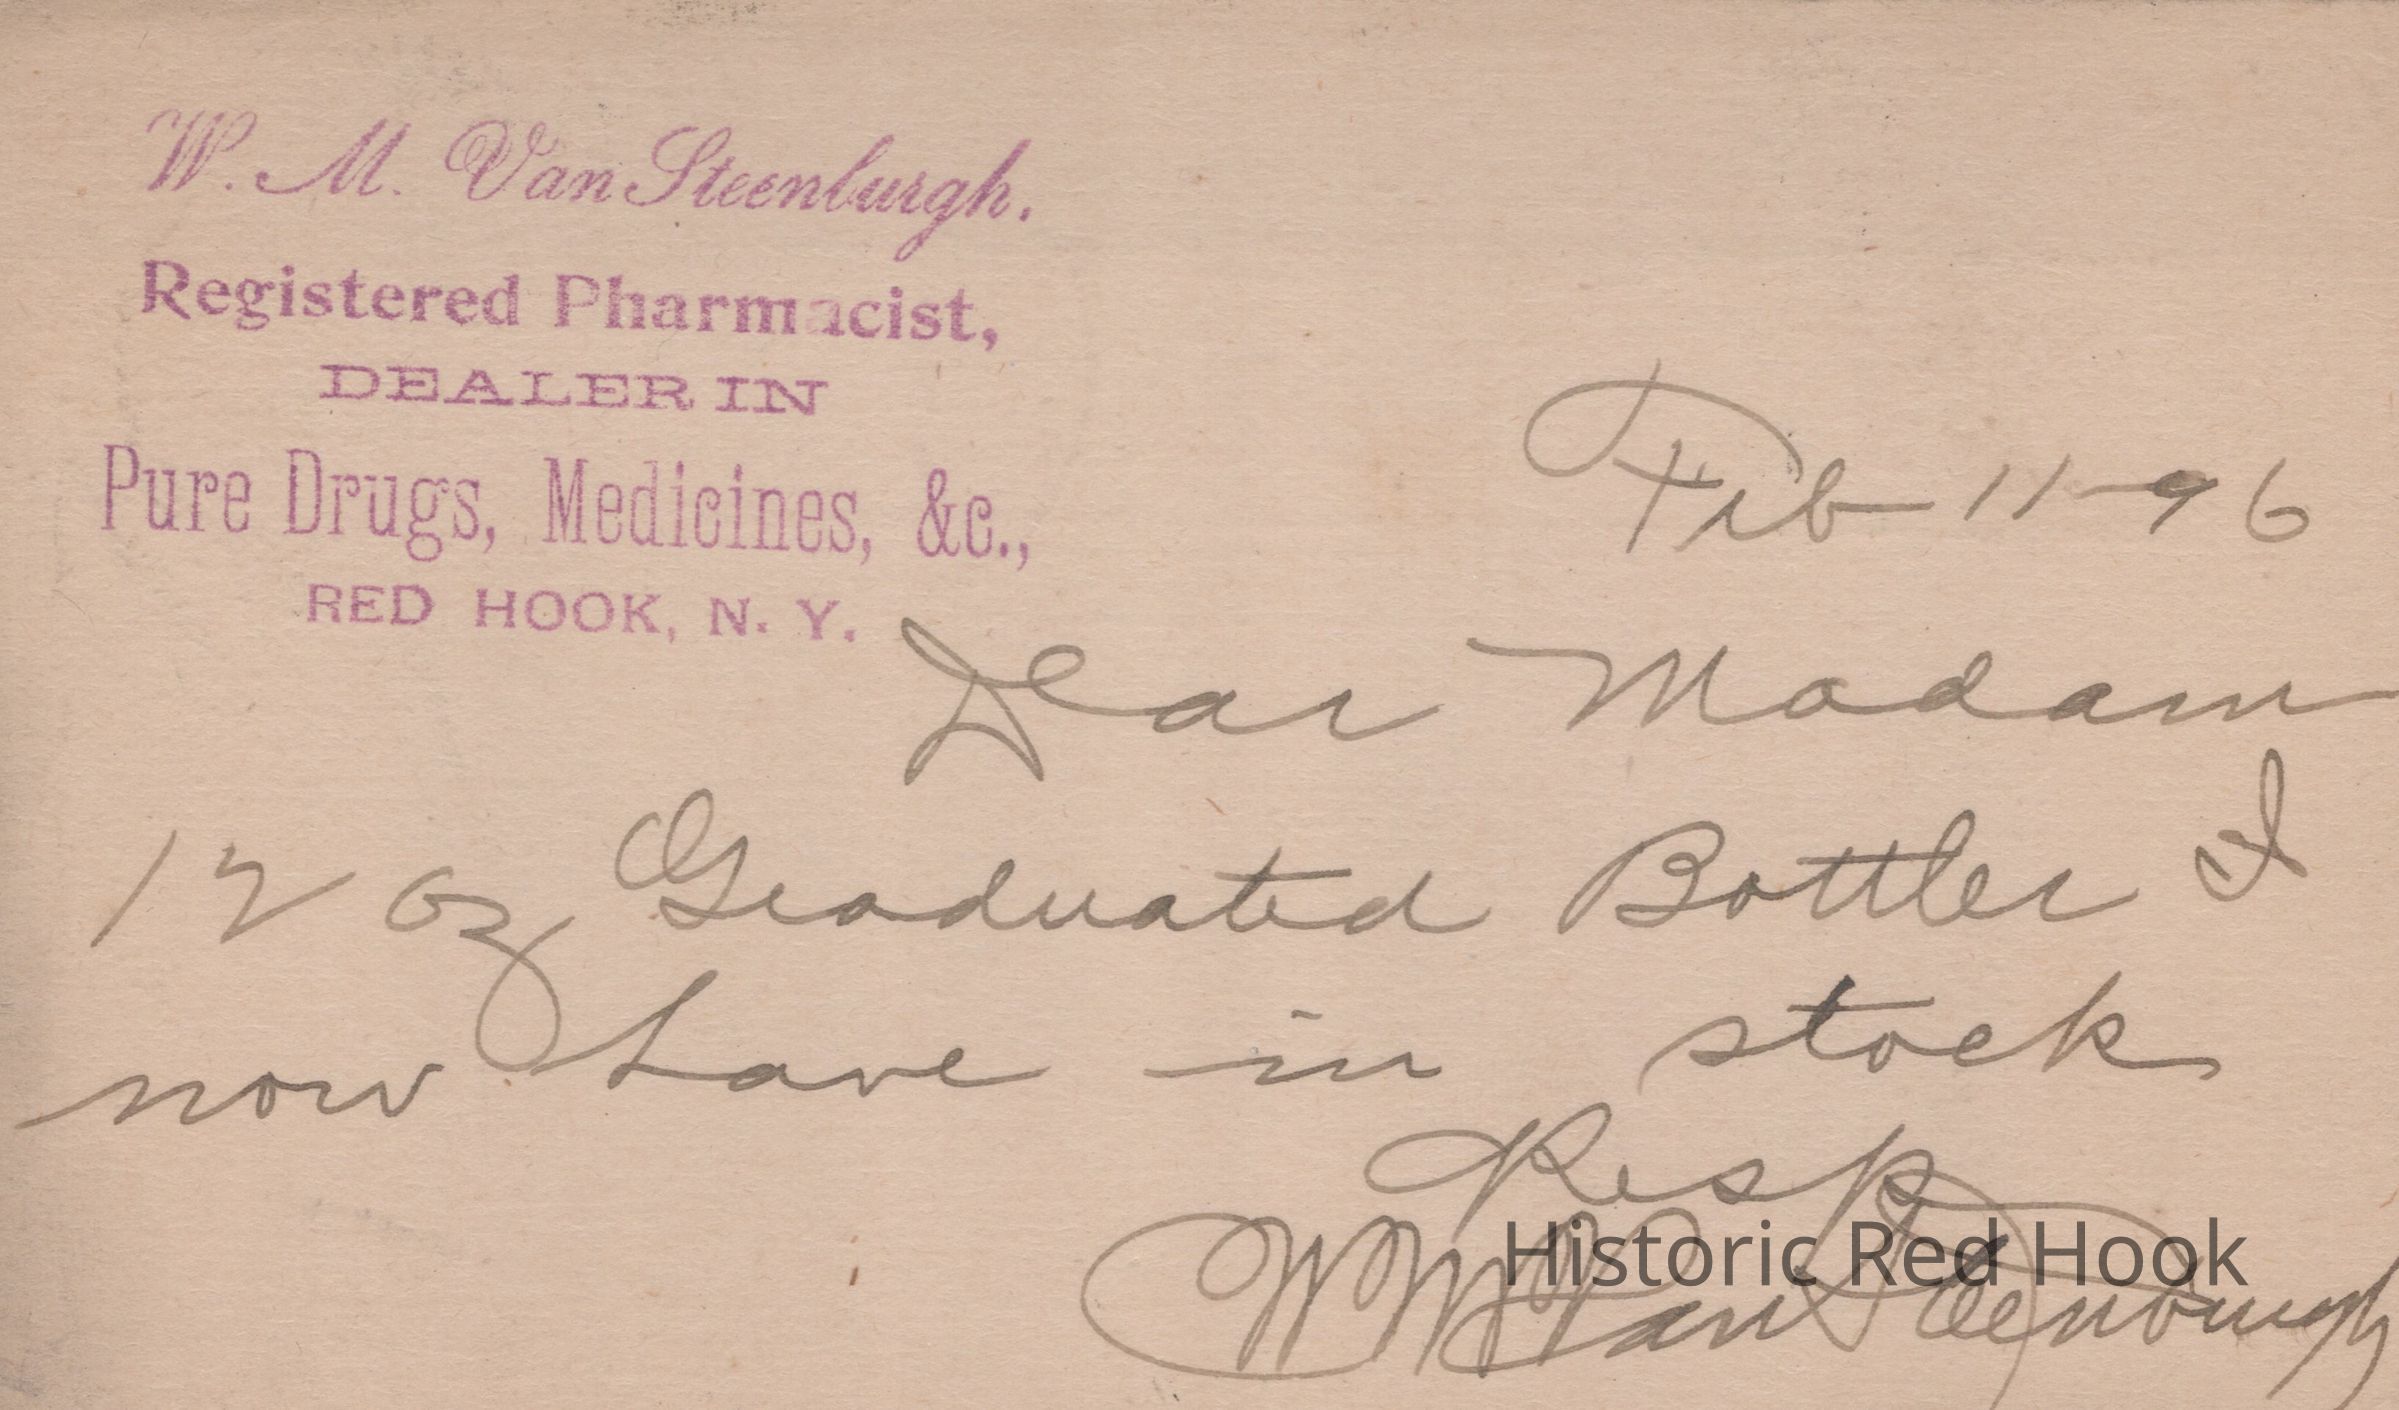 W. M. Van Steenburgh.
Registered Pharmacist,
DEALER IN
Pure Drugs, Medicines, &c.,
RED HOOK, N. Y.
Feb 11-96
Dear Madam
12 oz Graduated Bottles I
now have in stock
Resp
W M Van Steenburgh
Historic Red Hook